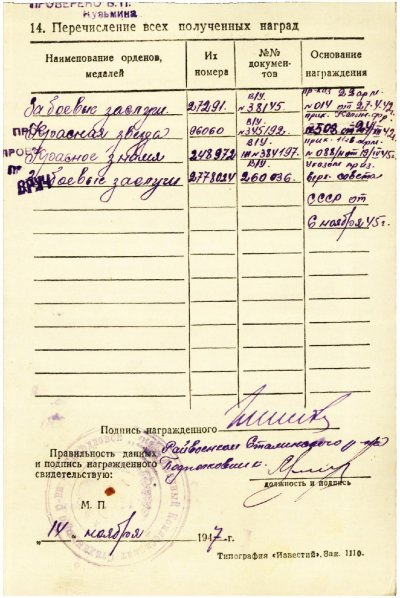 ПРОВЕРЕНО В.П.
Кузьмина
14. Перечисление всех полученных наград
Наименование орденов, медалей
Их номера
№№ документов
Основание награждения
За боевые заслуги 27291. В/У. № 38145 приказ 23 арм. № 014 от 27.4.42
Красная звезда 96060 В/У. № 345192.
Красное знамя 248972 В/У. № 384197.
За боевые заслуги 2778034 В/У. 260036. Указом през. верх. совета
СССР от
6 ноября 45 г.
Подпись награжденного
Правильность данных
и подпись награжденного
свидетельствую:
Райвоенком Сталинского р-на
Подполковник
должность и подпись
М. П.
„14“ ноября 1947 г.
Типография «Известий». Зак. 1110.